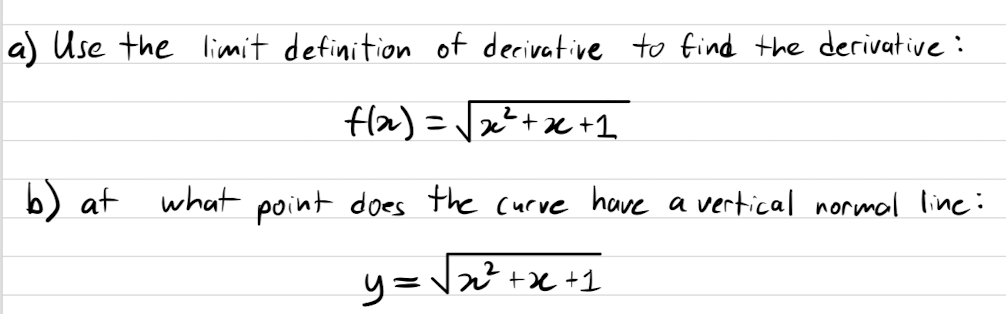 a) Use the limit definition of derivative to find the derivative:
f(x) = √(x² + x + 1)
b) at what point does the curve have a vertical normal line:
y = √(x² + x + 1)